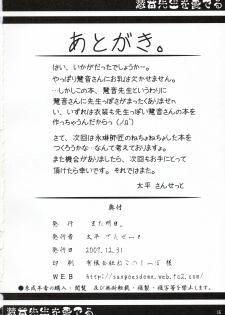 慧音先生を愛でる
あとがき。
はい、いかがだったでしょうかー。
やっぱり慧音さんにお乳は欠かせません。
…しかしこの本、慧音先生というわりに
慧音さんに先生っぽさがたりまありませ
い、いずれは衣装も先生っぽい慧音さんの本を
作っちゃうんだからっ（ノд`）
さて、次回は永琳師匠のねちょねちょした本を
つくろうかな…なんて考えておりますよ。
また機会がありましたら、次回もお手にとって
頂けたら幸いです。それではまた。
太平 さんせっと
奥付
発行 また明日。
発行者 太平 さんせっと
発行日 2007.12.31
印刷 有限会社ねこのしっぽ 様
WEB http://sunposdown.web.fc2.com/
●未成年者の購入・閲覧 及び無断転載・複製・複写等を禁じます●
慧音先生を愛でる